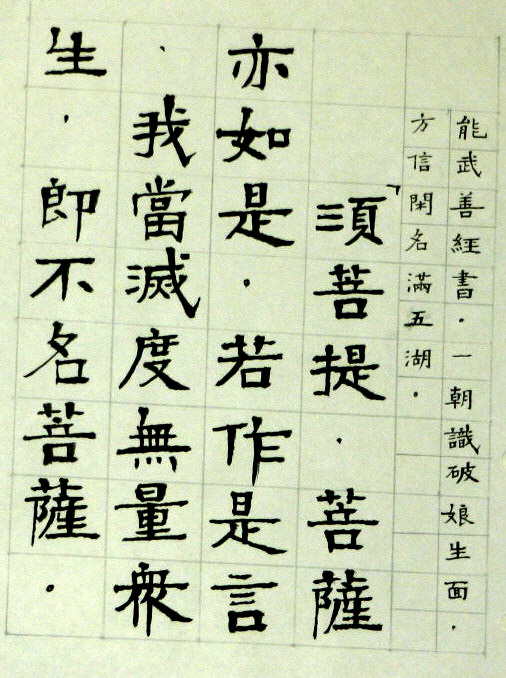 能武善經書．一朝識破娘生面．
方信閑名滿五湖．
「須菩提．菩薩
亦如是．若作是言
．我當滅度無量衆
生．即不名菩薩．